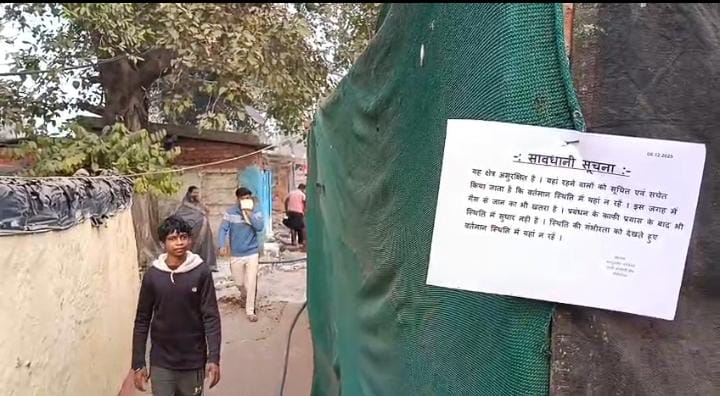 04.12.2025
-: सावधानी सूचना :-
यह क्षेत्र असुरक्षित है। यहां रहने वालों को सूचित एवं सचेत
किया जाता है कि वर्तमान स्थिति में यहां न रहें। इस जगह में
गैस से जान का भी खतरा है। प्रबंधन के काफी प्रयास के बाद भी
स्थिति में सुधार नहीं है। स्थिति की गंभीरता को देखते हुए
वर्तमान स्थिति में यहां न रहें।